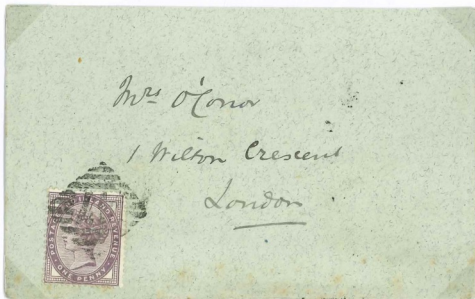 Mrs O'Conor
1 Wilton Crescent
London
POSTAGE AND INLAND REVENUE
ONE PENNY